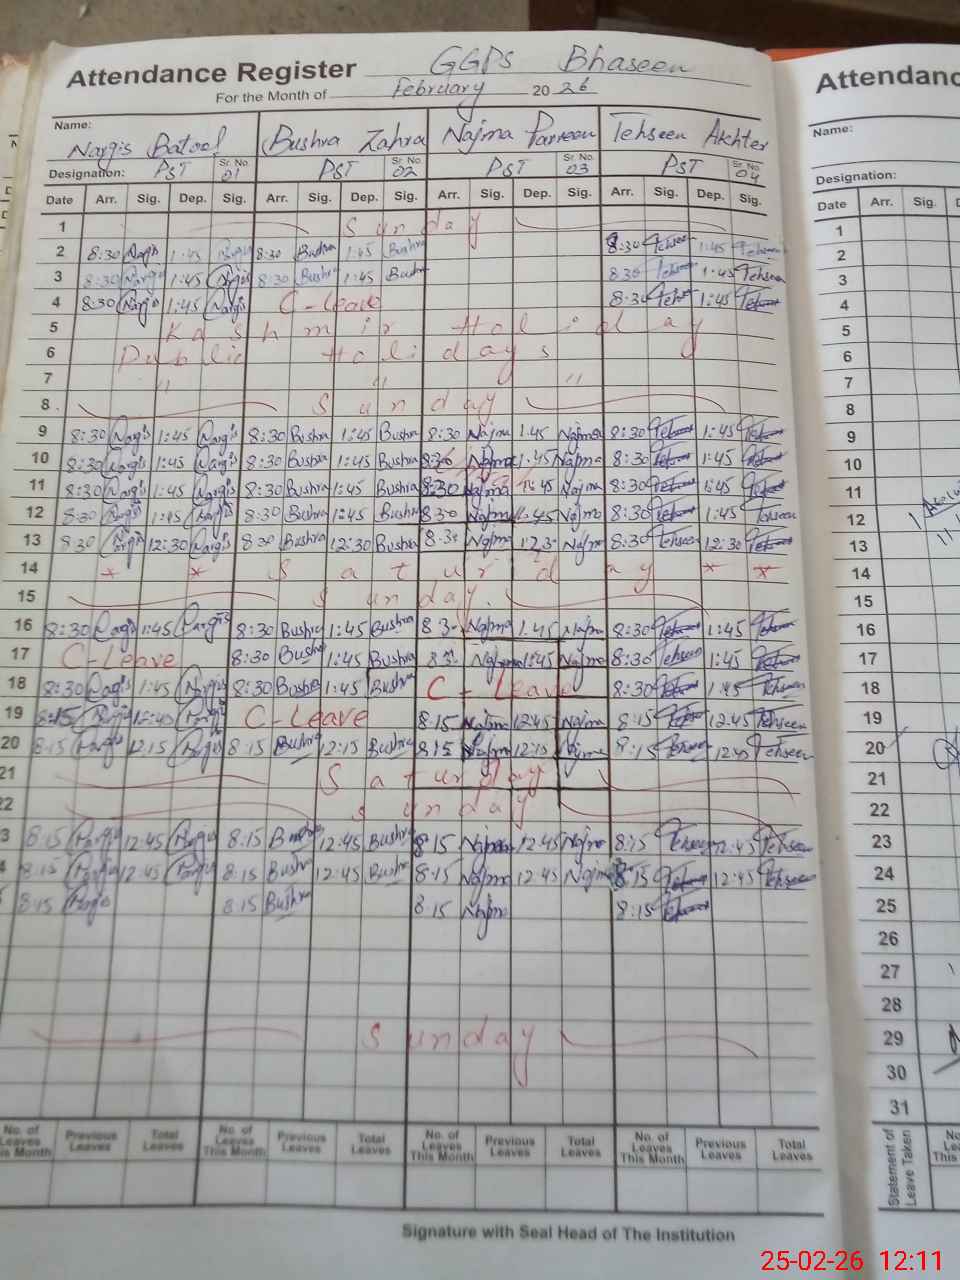 Attendance Register GGPS Bhaseen
For the Month of February 2026
Name: Nargis Batool Bushra Zahra Najma Parveen Tehseen Akhter
Designation: PST Sr. No. 01 PST Sr. No. 02 PST Sr. No. 03 PST Sr. No. 04
Date Arr. Sig. Dep. Sig. Arr. Sig. Dep. Sig. Arr. Sig. Dep. Sig. Arr. Sig. Dep. Sig.
1 Sunday
2 8:30 Nargis 1:45 Nargis 8:30 Bushra 1:45 Bushra 8:30 Tehseen 1:45 Tehseen
3 8:30 Nargis 1:45 Nargis 8:30 Bushra 1:45 Bushra 8:30 Tehseen 1:45 Tehseen
4 8:30 Nargis 1:45 Nargis C-Leave 8:30 Tehseen 1:45 Tehseen
5 Kashmir Holiday
6 Public Holidays
7 " " "
8 Sunday
9 8:30 Nargis 1:45 Nargis 8:30 Bushra 1:45 Bushra 8:30 Najma 1:45 Najma 8:30 Tehseen 1:45 Tehseen
10 8:30 Nargis 1:45 Nargis 8:30 Bushra 1:45 Bushra 8:30 Najma 1:45 Najma 8:30 Tehseen 1:45 Tehseen
11 8:30 Nargis 1:45 Nargis 8:30 Bushra 1:45 Bushra 8:30 Najma 1:45 Najma 8:30 Tehseen 1:45 Tehseen
12 8:30 Nargis 1:45 Nargis 8:30 Bushra 1:45 Bushra 8:30 Najma 1:45 Najma 8:30 Tehseen 1:45 Tehseen
13 8:30 Nargis 12:30 Nargis 8:30 Bushra 12:30 Bushra 8:30 Najma Najma 8:30 Tehseen 12:30 Tehseen
14 * * Saturday * *
15 Sunday
16 8:30 Nargis 1:45 Nargis 8:30 Bushra 1:45 Bushra 8:3 Najma 1:45 Najma 8:30 Tehseen 1:45 Tehseen
17 C-Leave 8:30 Bushra 1:45 Bushra 8:3 Najma 1:45 Najma 8:30 Tehseen 1:45 Tehseen
18 8:30 Nargis 1:45 Nargis 8:30 Bushra 1:45 Bushra C-Leave 8:30 Tehseen 1:45 Tehseen
19 8:15 Nargis 12:45 Nargis C-Leave 8:15 Najma 12:45 Najma 8:15 Tehseen 12:45 Tehseen
20 8:15 Nargis 12:15 Nargis 8:15 Bushra 12:15 Bushra 8:15 Najma 12:15 Najma 8:15 Tehseen 12:45 Tehseen
21 Saturday
22 Sunday
3 8:15 Nargis 12:45 Nargis 8:15 Bushra 12:45 Bushra 8:15 Najma 12:45 Najma 8:15 Tehseen 12:45 Tehseen
4 8:15 Nargis 12:45 Nargis 8:15 Bushra 12:45 Bushra 8:15 Najma 12:45 Najma 8:15 Tehseen 12:45 Tehseen
8:15 Nargis 8:15 Bushra 8:15 Najma 8:15 Tehseen
Sunday
No. of Leaves This Month Previous Leaves Total Leaves No. of Leaves This Month Previous Leaves Total Leaves No. of Leaves This Month Previous Leaves Total Leaves No. of Leaves This Month Previous Leaves Total Leaves
Signature with Seal Head of The Institution
Attendanc
Name:
Designation:
Date Arr. Sig.
1
2
3
4
5
6
7
8
9
10
11
12
13
14
15
16
17
18
19
20
21
22
23
24
25
26
27
28
29
30
31
Statement of Leave Taken
25-02-26 12:11